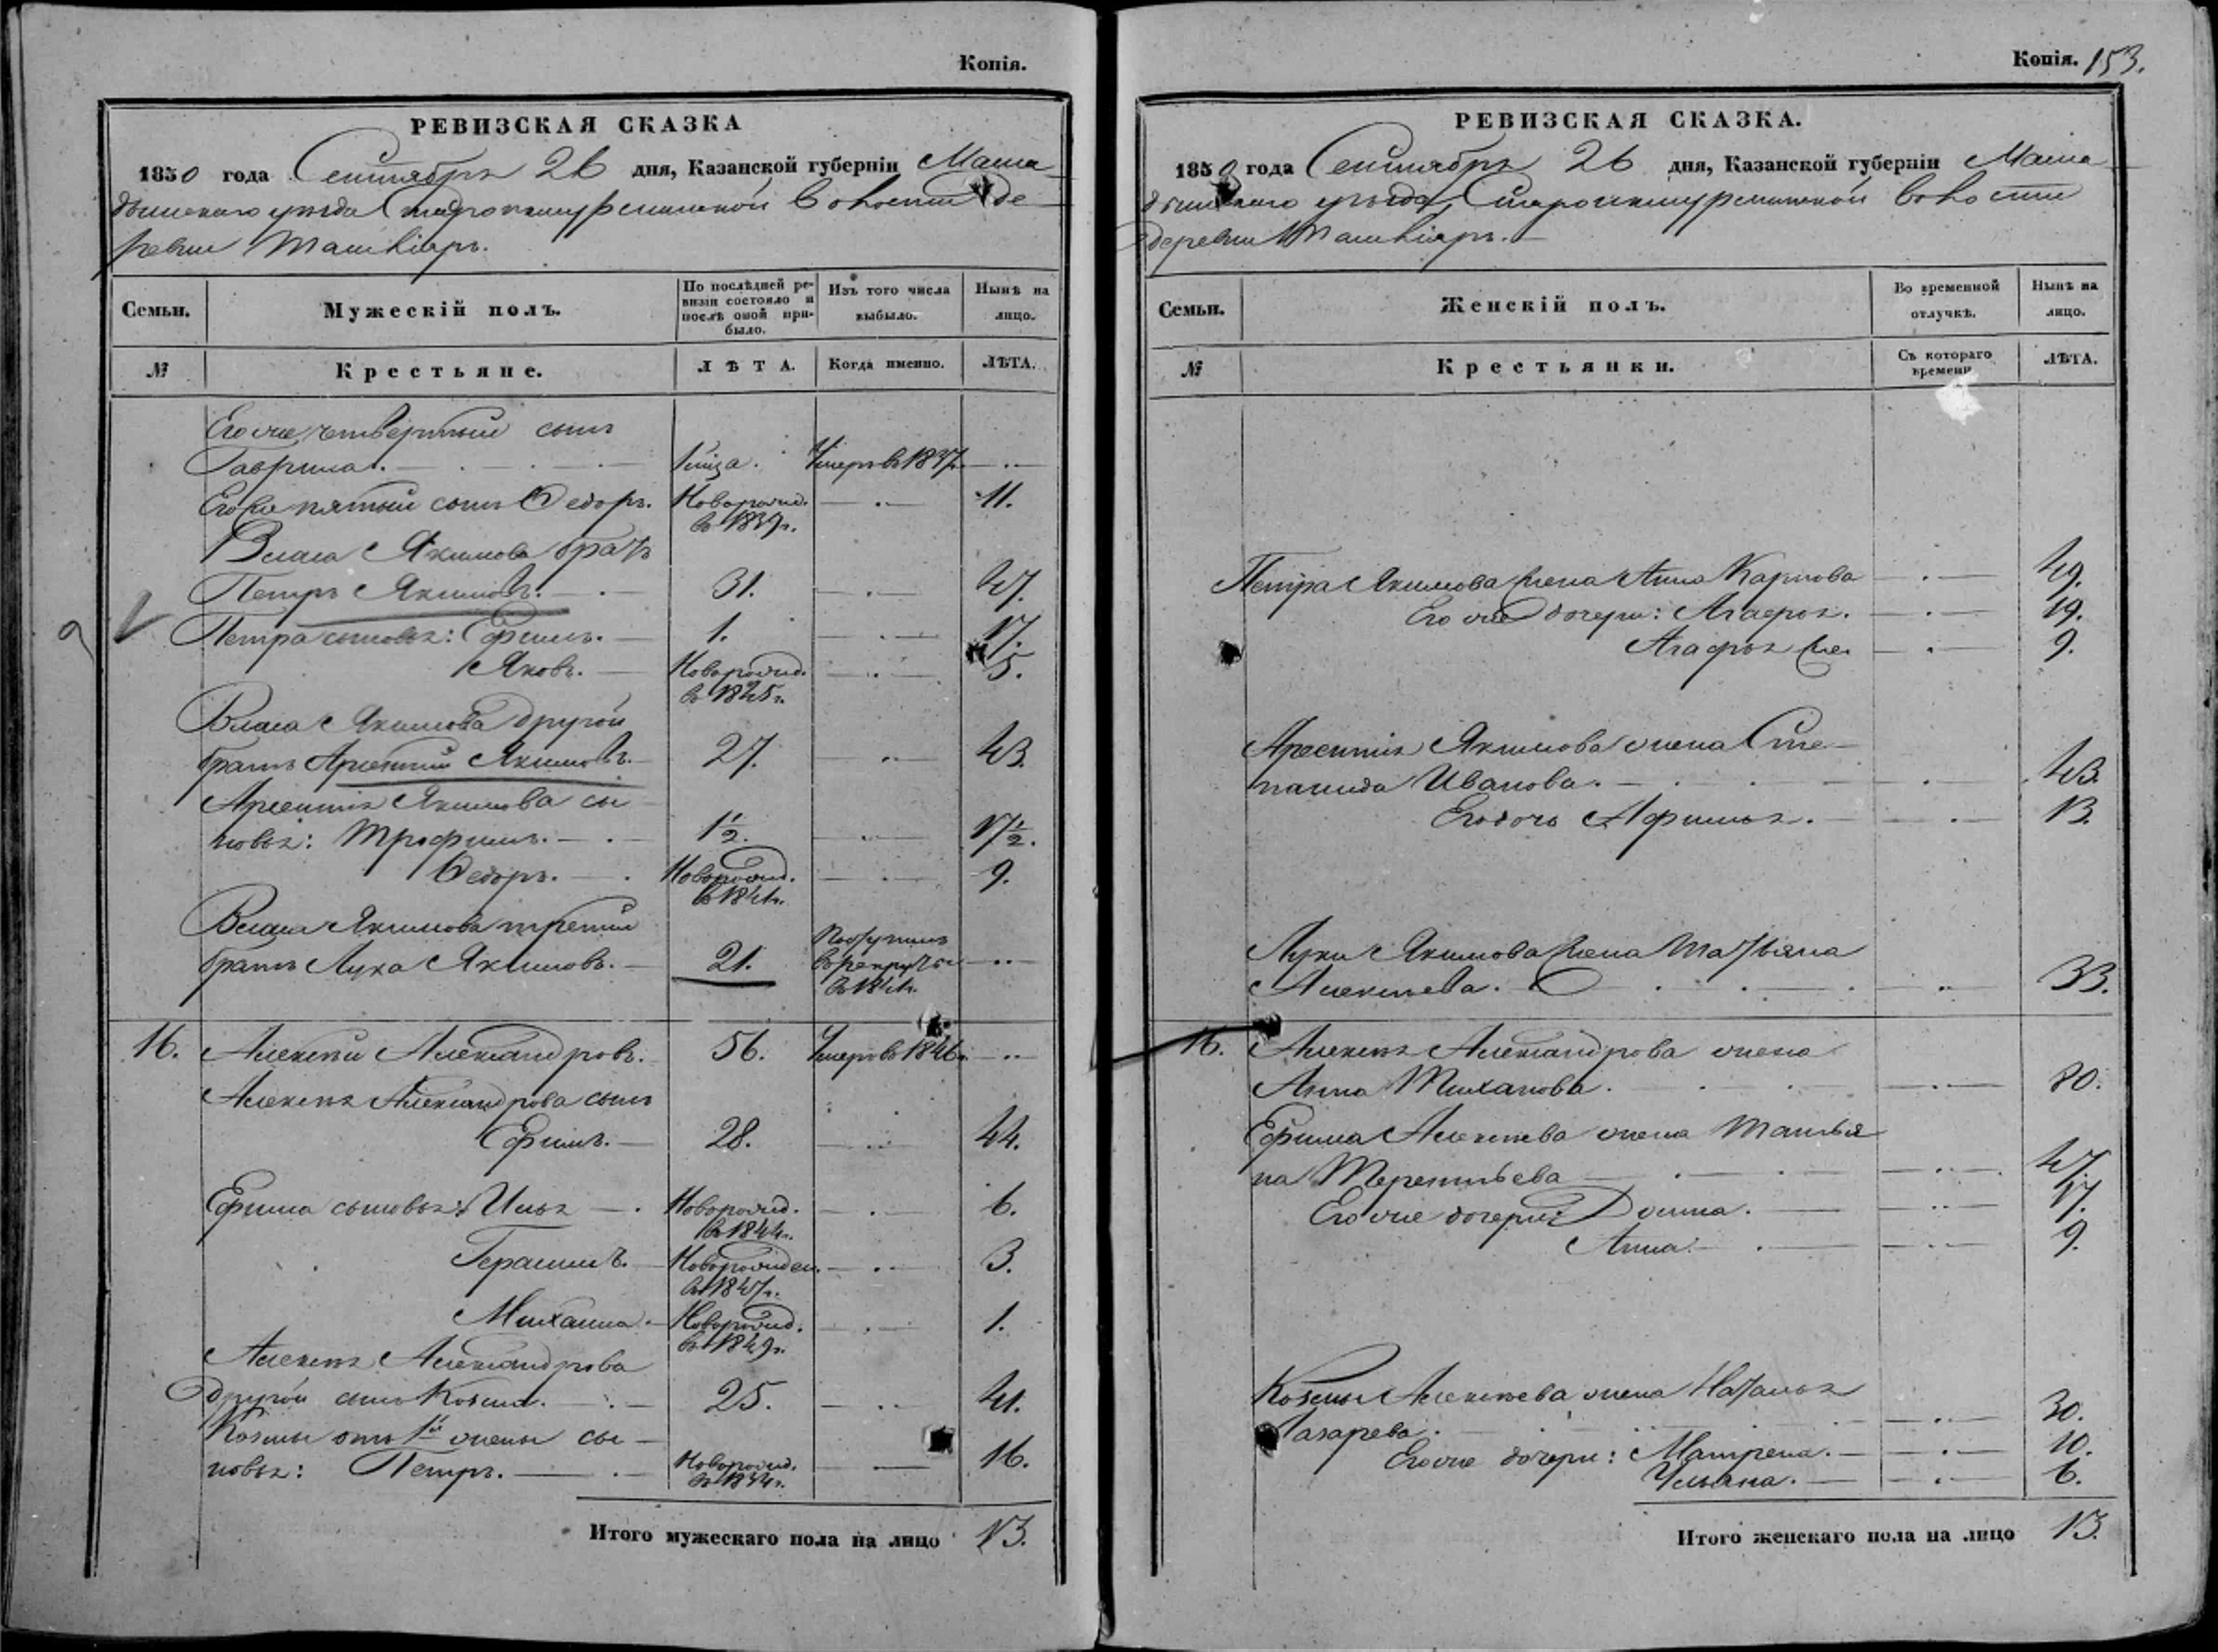 Копія.
РЕВИЗСКАЯ СКАЗКА
1850 года Сентября 26 дня, Казанской губерніи Мама-
дышскаго уѣзда волости де-
ревни
Семьи.
Мужескій полъ.
По послѣдней ре-
визіи состояло и
послѣ оной при-
было.
Изъ того числа
выбыло.
Нынѣ на
лицо.
№
Крестьяне.
ЛѢТА.
Когда именно.
ЛѢТА.
Его же четвертый сынъ
Гаврила. 1 Умеръ въ 1837
Его же пятый сынъ Ѳедоръ. Новорожд. 11.
въ 1839 г.
Власа Якимова братъ
Петръ Якимовъ. 31. 47.
Петра сыновья: Ефимъ. 1. 17.
Яковъ. Новорожд. 5.
въ 1845 г.
Власа Якимова другой
братъ Арсентій Якимовъ. 27. 43.
Арсентія Якимова сы-
новья: Трофимъ. 1 1/2. 17 1/2.
Ѳедоръ. Новорожд. 9.
въ 1841 г.
Власа Якимова третій
братъ Лука Якимовъ. 21. Поступилъ
въ рекруты
въ 1841.
16. Алексѣй Александровъ. 56. Умеръ въ 1846 г.
Алексѣя Александрова сынъ
Ефимъ. 28. 44.
Ефима сыновья: Илья Новорожд. 6.
въ 1844 г.
Герасимъ. Новорожден. 3.
въ 1847 г.
Михаила. Новорожд. 1.
въ 1849 г.
Алексѣя Александрова
другой сынъ Козьма. 25. 41.
Козьмы отъ 1й жены сы-
новья: Петръ. Новорожд. 16.
въ 1834 г.
Итого мужескаго пола на лицо 13.
Копія. 153.
РЕВИЗСКАЯ СКАЗКА.
1850 года Сентября 26 дня, Казанской губерніи Мама-
дышскаго уѣзда волости
деревни
Семьи.
Женскій полъ.
Во временной
отлучкѣ.
Нынѣ на
лицо.
№
Крестьянки.
Съ котораго
времени.
ЛѢТА.
Петра Якимова жена Анна Карпова 49.
Его же дочери: 19.
9.
Арсентія Якимова жена Сте-
панида Иванова. 43.
Его дочь Афимья. 13.
Луки Якимова жена Татьяна
Алексѣева. 33.
16. Алексѣя Александрова жена
Анна 80.
Ефима Алексѣева жена Татья-
на Терентьева 47.
Его же дочери: Домна. 17.
Анна. 9.
Козьмы Алексѣева жена Наталья
Лазарева. 30.
Его же дочери: Матрена. 10.
Ульяна. 6.
Итого женскаго пола на лицо 13.